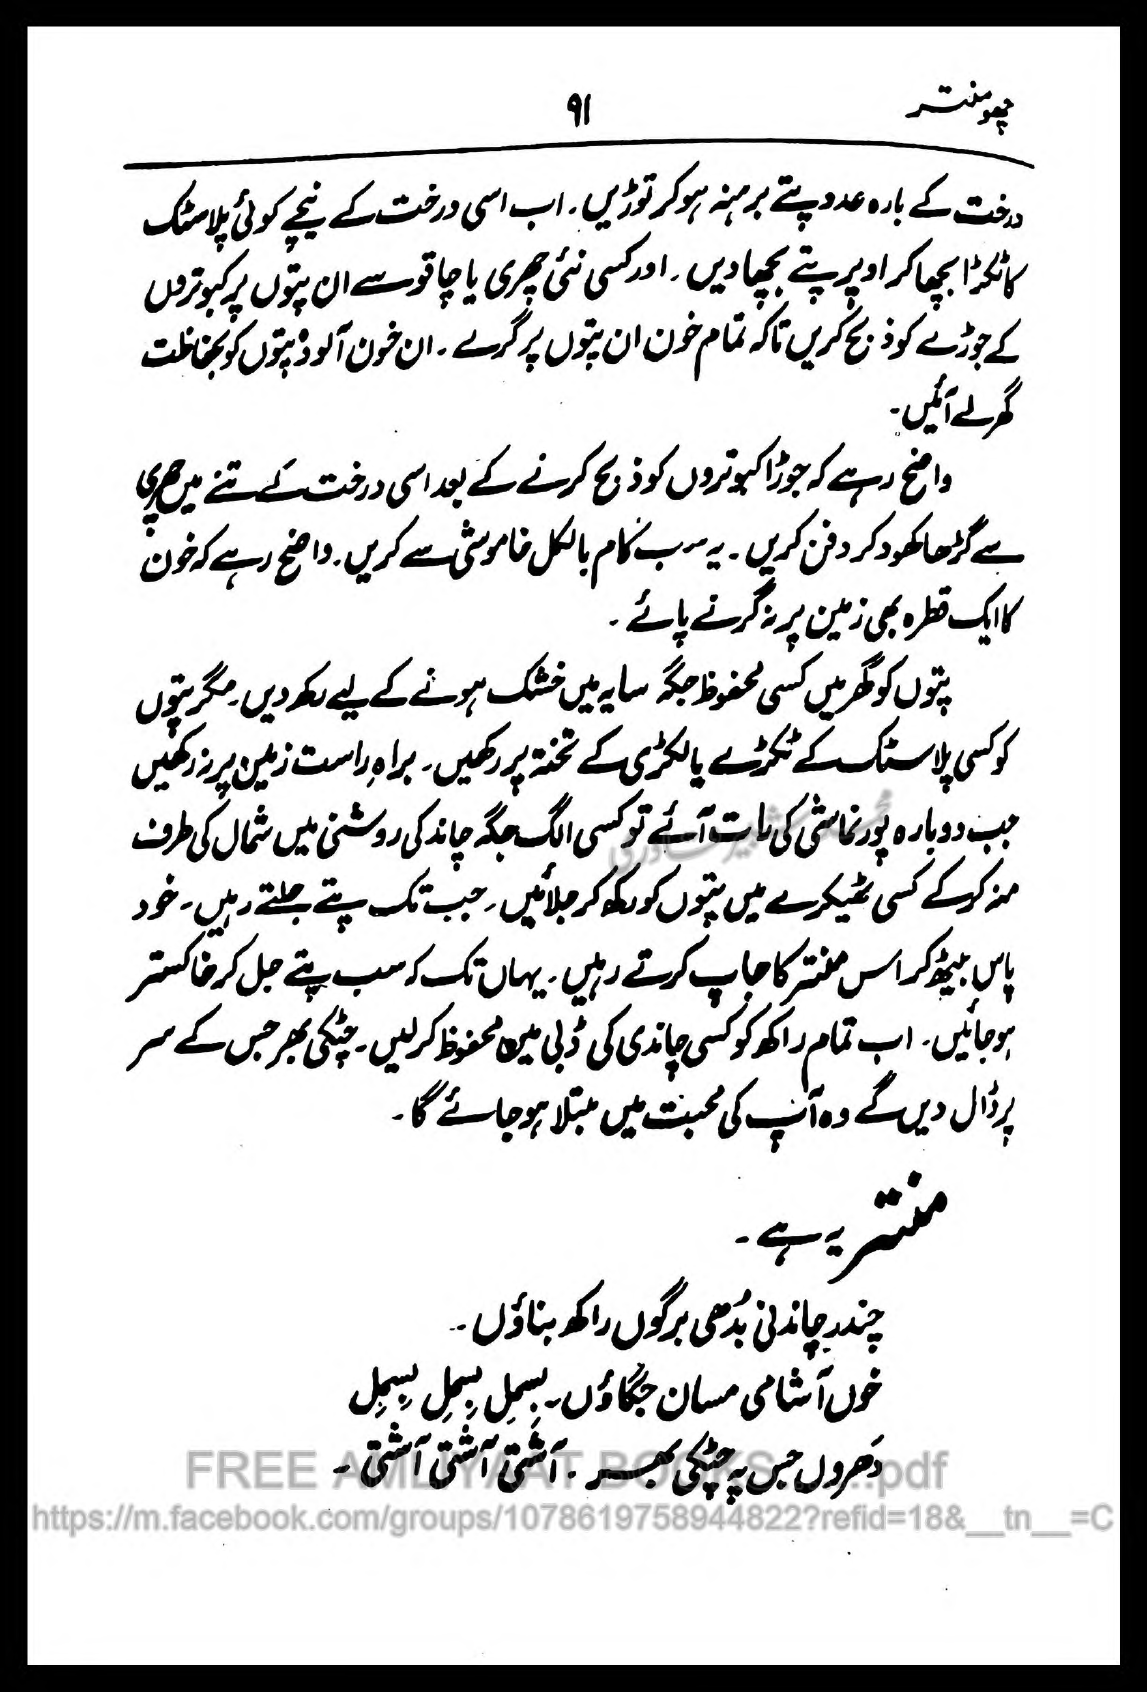 چھومنتر
۹۱
درخت کے بارہ عدد پتے برہنہ ہو کر توڑیں۔ اب اسی درخت کے نیچے کوئی پلاسٹک
کا ٹکڑا بچھا کر اوپر پتے بچھا دیں۔ اور کسی نئی چھری یا چاقو سے ان پتوں پر کبوتروں
کے جوڑے کو ذبح کریں تاکہ تمام خون ان پتوں پر گرے۔ ان خون آلود پتوں کو بحفاظت
گھر لے آئیں۔
واضح رہے کہ جوڑا کبوتروں کو ذبح کرنے کے بعد اسی درخت کے تنے میں چھری
سے گڑھا کھود کر دفن کریں۔ یہ سب کام بالکل خاموشی سے کریں۔ واضح رہے کہ خون
کا ایک قطرہ بھی زمین پر نہ گرنے پائے۔
پتوں کو گھر میں کسی محفوظ جگہ سایہ میں خشک ہونے کے لیے رکھ دیں۔ مگر پتوں
کو کسی پلاسٹک کے ٹکڑے یا لکڑی کے تختہ پر رکھیں۔ براہِ راست زمین پر نہ رکھیں
جب دوبارہ پورنماشی کی رات آئے تو کسی الگ جگہ چاند کی روشنی میں شمال کی طرف
منہ کر کے کسی ٹھیکرے میں پتوں کو رکھ کر جلائیں۔ جب تک پتے جلتے رہیں۔ خود
پاس بیٹھ کر اس منتر کا جاپ کرتے رہیں۔ یہاں تک کہ سب پتے جل کر خاکستر
ہو جائیں۔ اب تمام راکھ کو کسی چاندی کی ڈبی میں محفوظ کر لیں۔ چٹکی بھر جس کے سر
پر ڈال دیں گے وہ آپ کی محبت میں مبتلا ہو جائے گا۔
منتر یہ ہے۔
چندر چاندنی بُدھی برگوں راکھ بناؤں۔
خوں آشامی مسان جگاؤں۔ بِسمِل بِسمِل بِسمِل
دَھروں جس پہ چٹکی بھر۔ آشتی آشتی آشتی۔
FREE AMLIYAAT BOOKS....pdf
https://m.facebook.com/groups/1078619758944822?refid=18&__tn__=C